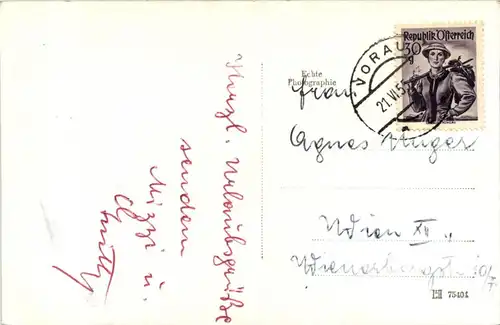 Herzl. Urlaubsgrüße
senden
Mizzi u.
Willy
Echte
Photographie
Republik Österreich
30 g
VORAU
21.VI.5
a
Frau
Agnes Unger
Wien XII.,
Wienerbergstr. 10/7
75404